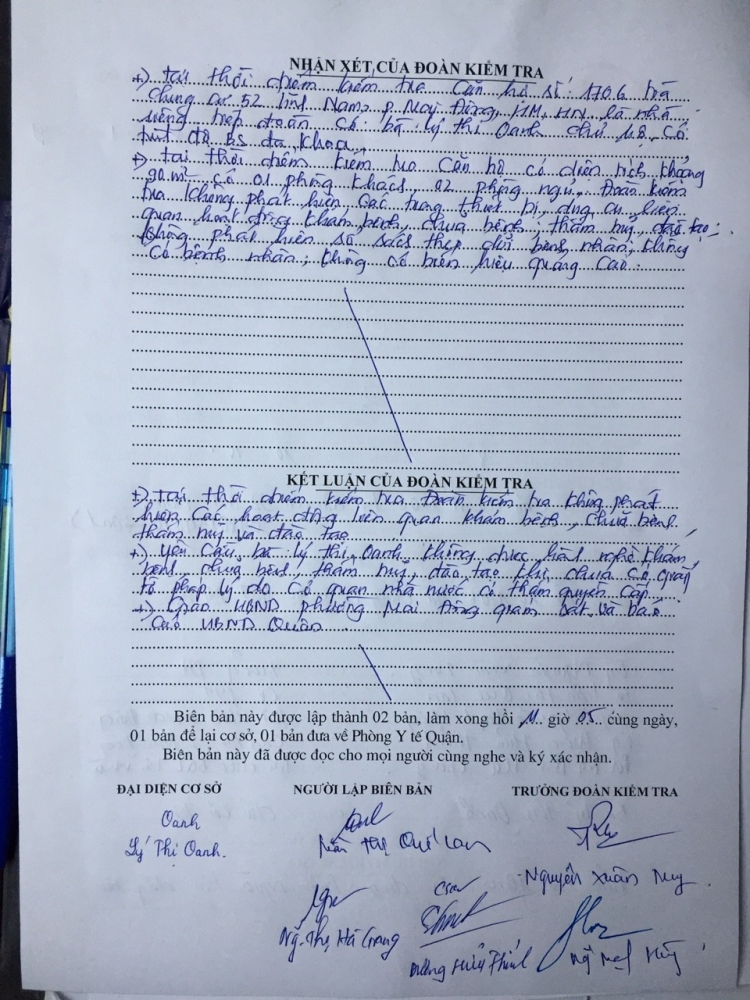 NHẬN XÉT CỦA ĐOÀN KIỂM TRA
+) tại thời điểm kiểm tra căn hộ số: 1706 toà
chung cư 52 Lĩnh Nam, p. Mai Động, HM, HN là nhà
riêng có bà Lý Thị Oanh chủ hộ, có
BS đa khoa.
+) tại thời điểm kiểm tra căn hộ có diện tích khoảng
90 m² có 01 phòng khách, 02 phòng ngủ. Đoàn kiểm
tra không phát hiện các trang thiết bị, dụng cụ liên
quan hoạt động khám bệnh, chữa bệnh; thẩm mỹ, đào tạo;
không phát hiện sổ sách tiếp đón bệnh nhân; không
có bệnh nhân; không có biển hiệu quảng cáo.
KẾT LUẬN CỦA ĐOÀN KIỂM TRA
+) tại thời điểm kiểm tra Đoàn kiểm tra không phát
hiện các hoạt động liên quan khám bệnh, chữa bệnh
thẩm mỹ và đào tạo
+) yêu cầu bà Lý Thị Oanh không được hành nghề khám
bệnh, chữa bệnh, thẩm mỹ, đào tạo khi chưa có giấy
tờ pháp lý do cơ quan nhà nước có thẩm quyền cấp
+) Giao UBND phường Mai Động giám sát và báo
cáo UBND Quận
Biên bản này được lập thành 02 bản, làm xong hồi 11 giờ 05 cùng ngày,
01 bản để lại cơ sở, 01 bản đưa về Phòng Y tế Quận.
Biên bản này đã được đọc cho mọi người cùng nghe và ký xác nhận.
ĐẠI DIỆN CƠ SỞ NGƯỜI LẬP BIÊN BẢN TRƯỞNG ĐOÀN KIỂM TRA
Oanh
Lý Thị Oanh. Trần Thị Quế Lan
Nguyễn Xuân Huy
Ng. Thị Hà Giang